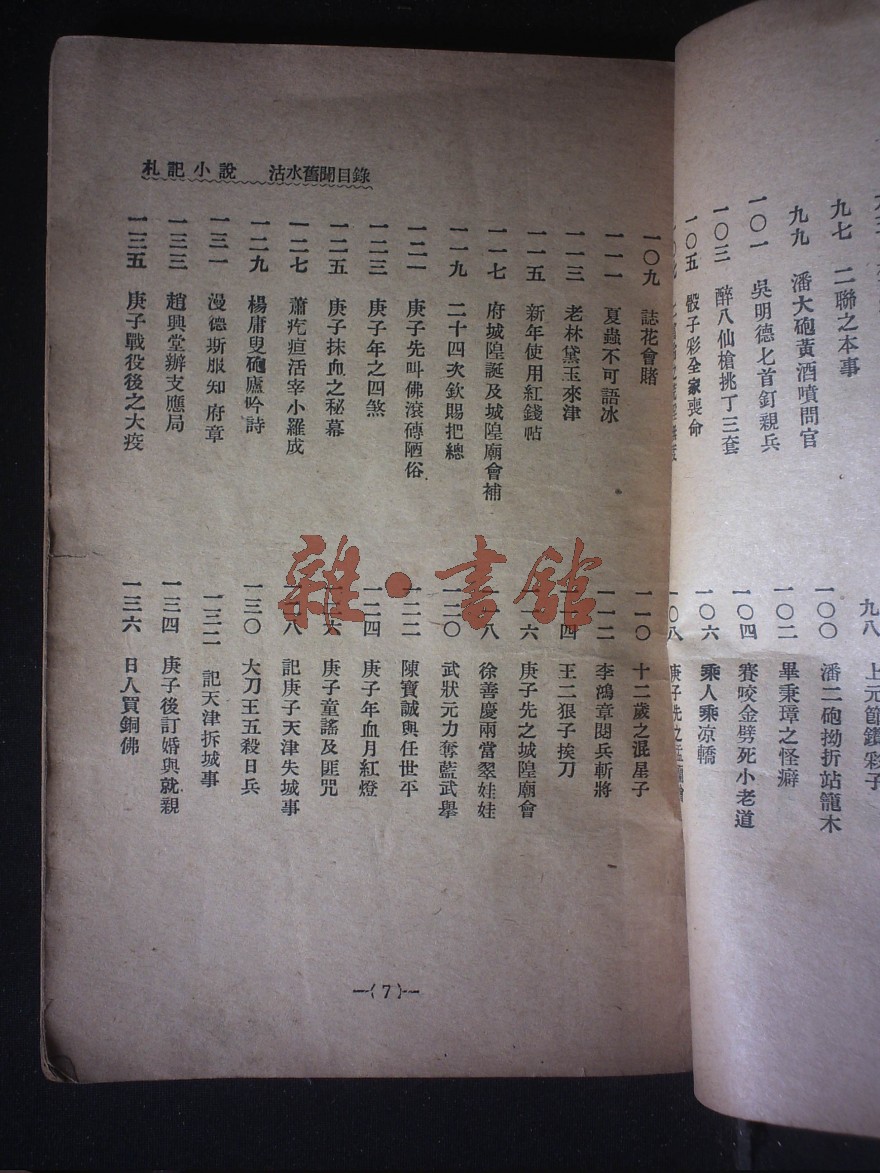 九七　二聯之本事
九八　上元節鑽彩子
九九　潘大砲黃酒噴問官
一〇〇　潘二砲拗折站籠木
一〇一　吳明德匕首釘親兵
一〇二　畢秉璋之怪癖
一〇三　醉八仙槍挑丁三套
一〇四　賽咬金劈死小老道
一〇五　骰子彩全家喪命
一〇六　乘人乘凉轎
一〇八　庚子先之
札記小說　沽水舊聞目錄
一〇九　誌花會賭
一一〇　十二歲之混星子
一一一　夏蟲不可語冰
一一二　李鴻章閱兵斬將
一一三　老林黛玉來津
一一四　王二狠子挨刀
一一五　新年使用紅錢帖
一一六　庚子先之城隍廟會
一一七　府城隍誕及城隍廟會補
一一八　徐善慶兩當翠娃娃
一一九　二十四次欽賜把總
一二〇　武狀元力奪藍武舉
一二一　庚子先叫佛滾磚陋俗
一二二　陳寶誠與任世平
一二三　庚子年之四煞
一二四　庚子年血月紅燈
一二五　庚子抹血之秘幕
一二六　庚子童謠及匪咒
一二七　蕭疙疸活宰小羅成
一二八　記庚子天津失城事
一二九　楊庸叟砲廬吟詩
一三〇　大刀王五殺日兵
一三一　漫德斯服知府章
一三二　記天津拆城事
一三三　趙興堂辦支應局
一三四　庚子後訂婚與就親
一三五　庚子戰役後之大疫
一三六　日人買銅佛
—(7)—
雜·書館